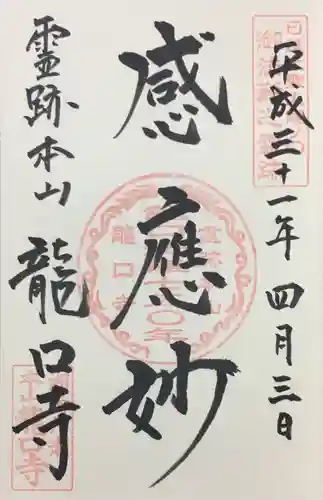 平成三十一年四月三日
感應妙
霊跡本山龍口寺